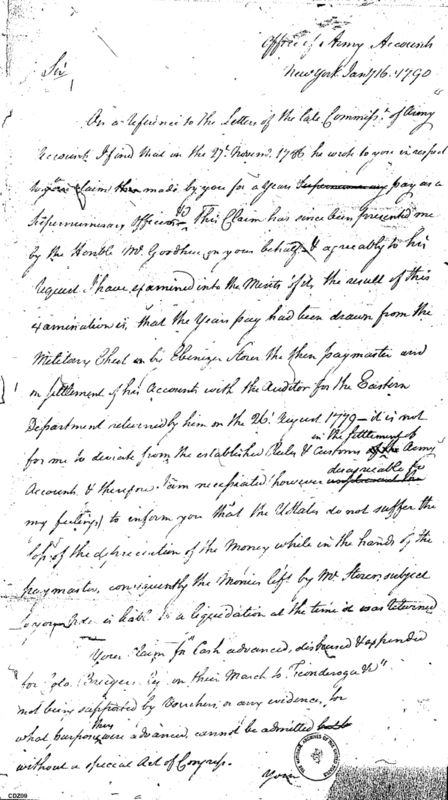 Office of Army Accounts
New York Jany 16. 1790
Sir
On a reference to the Letters of the late Commissr. of Army
Accounts I find that on the 27. Novem. 1786 he wrote to you in respect
to claim made by you for a Years pay as a
Supernumerary Officer This Claim has since been presented me
by the Honble Mr. Goodhue on your behalf & agreeably to his
request I have examined into the Merits of it, the result of this
examination is, that the Years pay had been drawn from the
Military Chest by Ebenezer Storer the then paymaster and
on settlement of his Accounts with the Auditor for the Eastern
Department returned by him on the 26. August 1779 - it is not
for me to deviate from the established Rules & Customs
in the settlement of
Army
Accounts & therefore I am necessitated (however
disagreeable to
my feelings) to inform you that the U States do not suffer the
loss of the depreciation of the Money while in the hands of the
paymaster, consequently the Monies left by Mr. Storer, subject
to your Order is liable to a liquidation at the time it was returned
Your Claim for "Cash advanced, disbursed & expended
for Colo. Regt. on their March to Ticonderoga &c"
not being supported by Vouchers or any evidence, for
what purpose
they
were advanced cannot be admitted
without a special Act of Congress.
Your
CDZ09